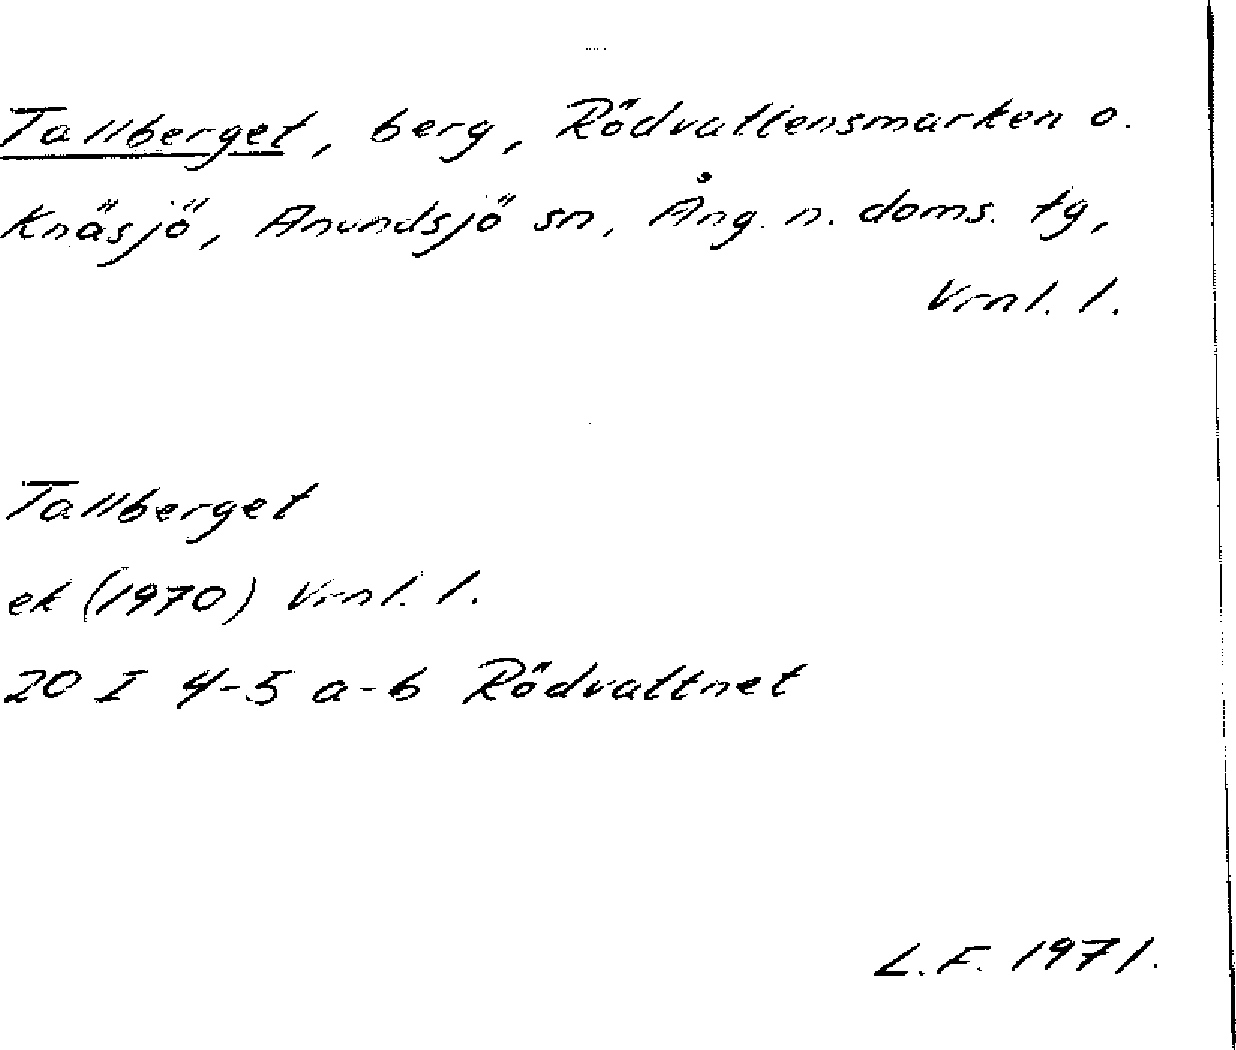 Tallberget, berg, Rödvattensmarken o.
Knäsjö, Anundsjö sn, Ång. n. doms. tg,
Vrnl. l.
Tallberget
ek (1970) Vrnl. l.
20 I 4-5 a-b Rödvattnet
L.F. 1971.